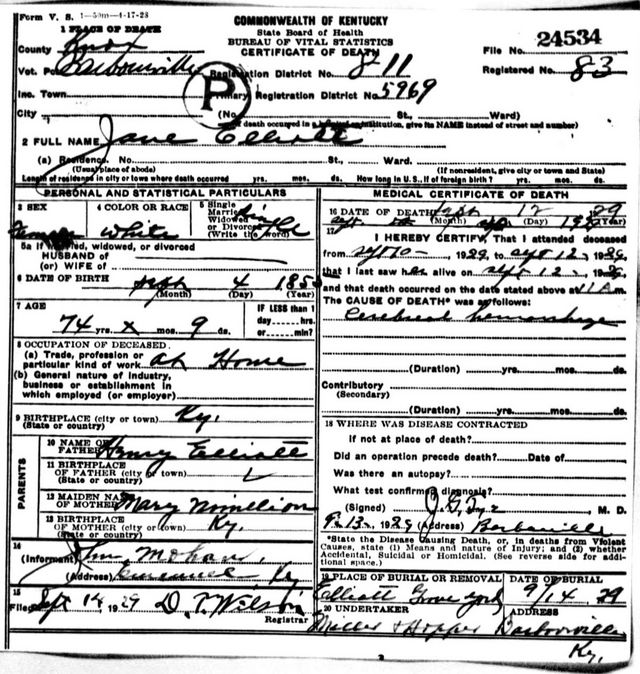 Form V. S. 1-50m-4-17-28
COMMONWEALTH OF KENTUCKY
State Board of Health
BUREAU OF VITAL STATISTICS
CERTIFICATE OF DEATH
1 PLACE OF DEATH
County Knox
File No. 24534
Vot. Barbourville
Registration District No. 811
Registered No. 83
Inc. Town
P
Primary Registration District No. 5969
City (No. St., Ward)
death occurred in a institution, give its NAME instead of street and number)
2 FULL NAME Jane Elliott
(a) Residence. No. St., Ward.
(Usual place of abode) (If nonresident, give city or town and State)
Length of residence in city or town where death occurred yrs. mos. ds. How long in U.S., if of foreign birth? yrs. mos. ds.
PERSONAL AND STATISTICAL PARTICULARS
3 SEX Female
4 COLOR OR RACE White
5 Single
Married
Widowed
or Divorced
(Write the word)
Single
5a If married, widowed, or divorced
HUSBAND of
(or) WIFE of
6 DATE OF BIRTH Sept 4 185
(Month) (Day) (Year)
7 AGE
74 yrs. x mos. 9 ds.
IF LESS than 1
day hrs.
or min.?
8 OCCUPATION OF DECEASED
(a) Trade, profession or
particular kind of work At Home
(b) General nature of industry,
business or establishment in
which employed (or employer)
9 BIRTHPLACE (city or town) Ky.
(State or country)
PARENTS
10 NAME OF
FATHER Henry Elliott
11 BIRTHPLACE
OF FATHER (city or town)
(State or country)
12 MAIDEN NAME
OF MOTHER Mary
13 BIRTHPLACE
OF MOTHER (city or town) Ky.
(State or country)
14
(Informant)
(Address) Emanuel Ky
15
Filed Sept 14 1929 D. T. Wilson
Registrar
MEDICAL CERTIFICATE OF DEATH
16 DATE OF DEATH Sept 12 29
(Month) (Day) (Year)
17
I HEREBY CERTIFY, That I attended deceased
from Sept 10 1929, to Sept 12, 1929,
that I last saw her alive on Sept 12, 1929,
and that death occurred on the date stated above at 11 A m.
The CAUSE OF DEATH* was as follows:
Cerebral hemorrhage
(Duration) yrs. mos. ds.
Contributory
(Secondary)
(Duration) yrs. mos. ds.
18 WHERE WAS DISEASE CONTRACTED
If not at place of death?
Did an operation precede death? Date of
Was there an autopsy?
What test confirmed diagnosis?
(Signed) M. D.
9-13- 1929 (Address) Barbourville
*State the Disease Causing Death, or, in deaths from Violent
Causes, state (1) Means and nature of Injury; and (2) whether
Accidental, Suicidal or Homicidal. (See reverse side for addi-
tional space.)
19 PLACE OF BURIAL OR REMOVAL
Elliott Grove yard
DATE OF BURIAL
9/14 29
20 UNDERTAKER
Miller & Hopper
ADDRESS
Barbourville
Ky.